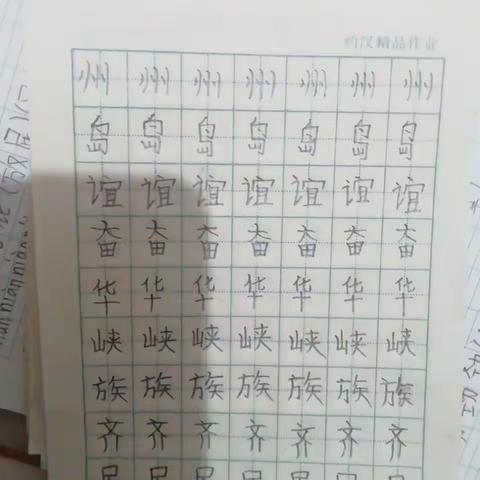 约汉精品作业
州州州州州州州
岛岛岛岛岛岛岛
谊谊谊谊谊谊谊
奋奋奋奋奋奋奋
华华华华华华华
峡峡峡峡峡峡峡
族族族族族族族
齐齐齐齐齐齐齐